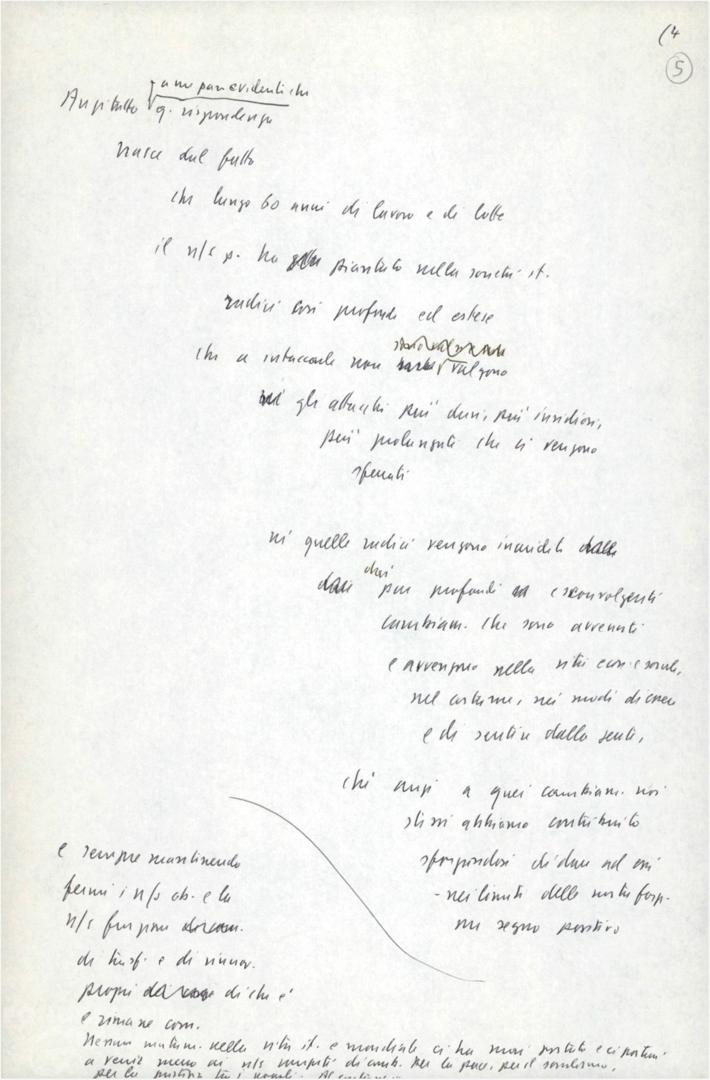 (4
5
a me pare evidente che
Anzitutto q. rispondenza
nasce dal fatto
che lungo 60 anni di lavoro e di lotte
il n/s p. ha piantato nella società it.
radici così profonde ed estese
che a intaccarle non valgono
né gli attacchi più duri, più insidiosi,
più prolungati che ci vengono
sferrati
né quelle radici vengono inaridite
dai pur profondi e sconvolgenti
cambiam. che sono avvenuti
e avvengono nella vita econ. e sociale,
nel costume, nei modi di
e di sentire della gente,
ché anzi a quei cambiam. noi
stessi abbiamo contribuito
sforzandosi di dare ad essi
- nei limiti delle nostre forze -
un segno positivo
e sempre mantenendo
fermi i n/s ob. e la
n/s funzione
di trasf. e di rinnov.
propri di chi è
e rimane com.
Nessun mutam. nella vita it. e mondiale ci ha mai portato e ci porterà
a venir meno ai n/s compiti di comb. per la pace, per il socialismo,
per la giustizia tra i popoli.